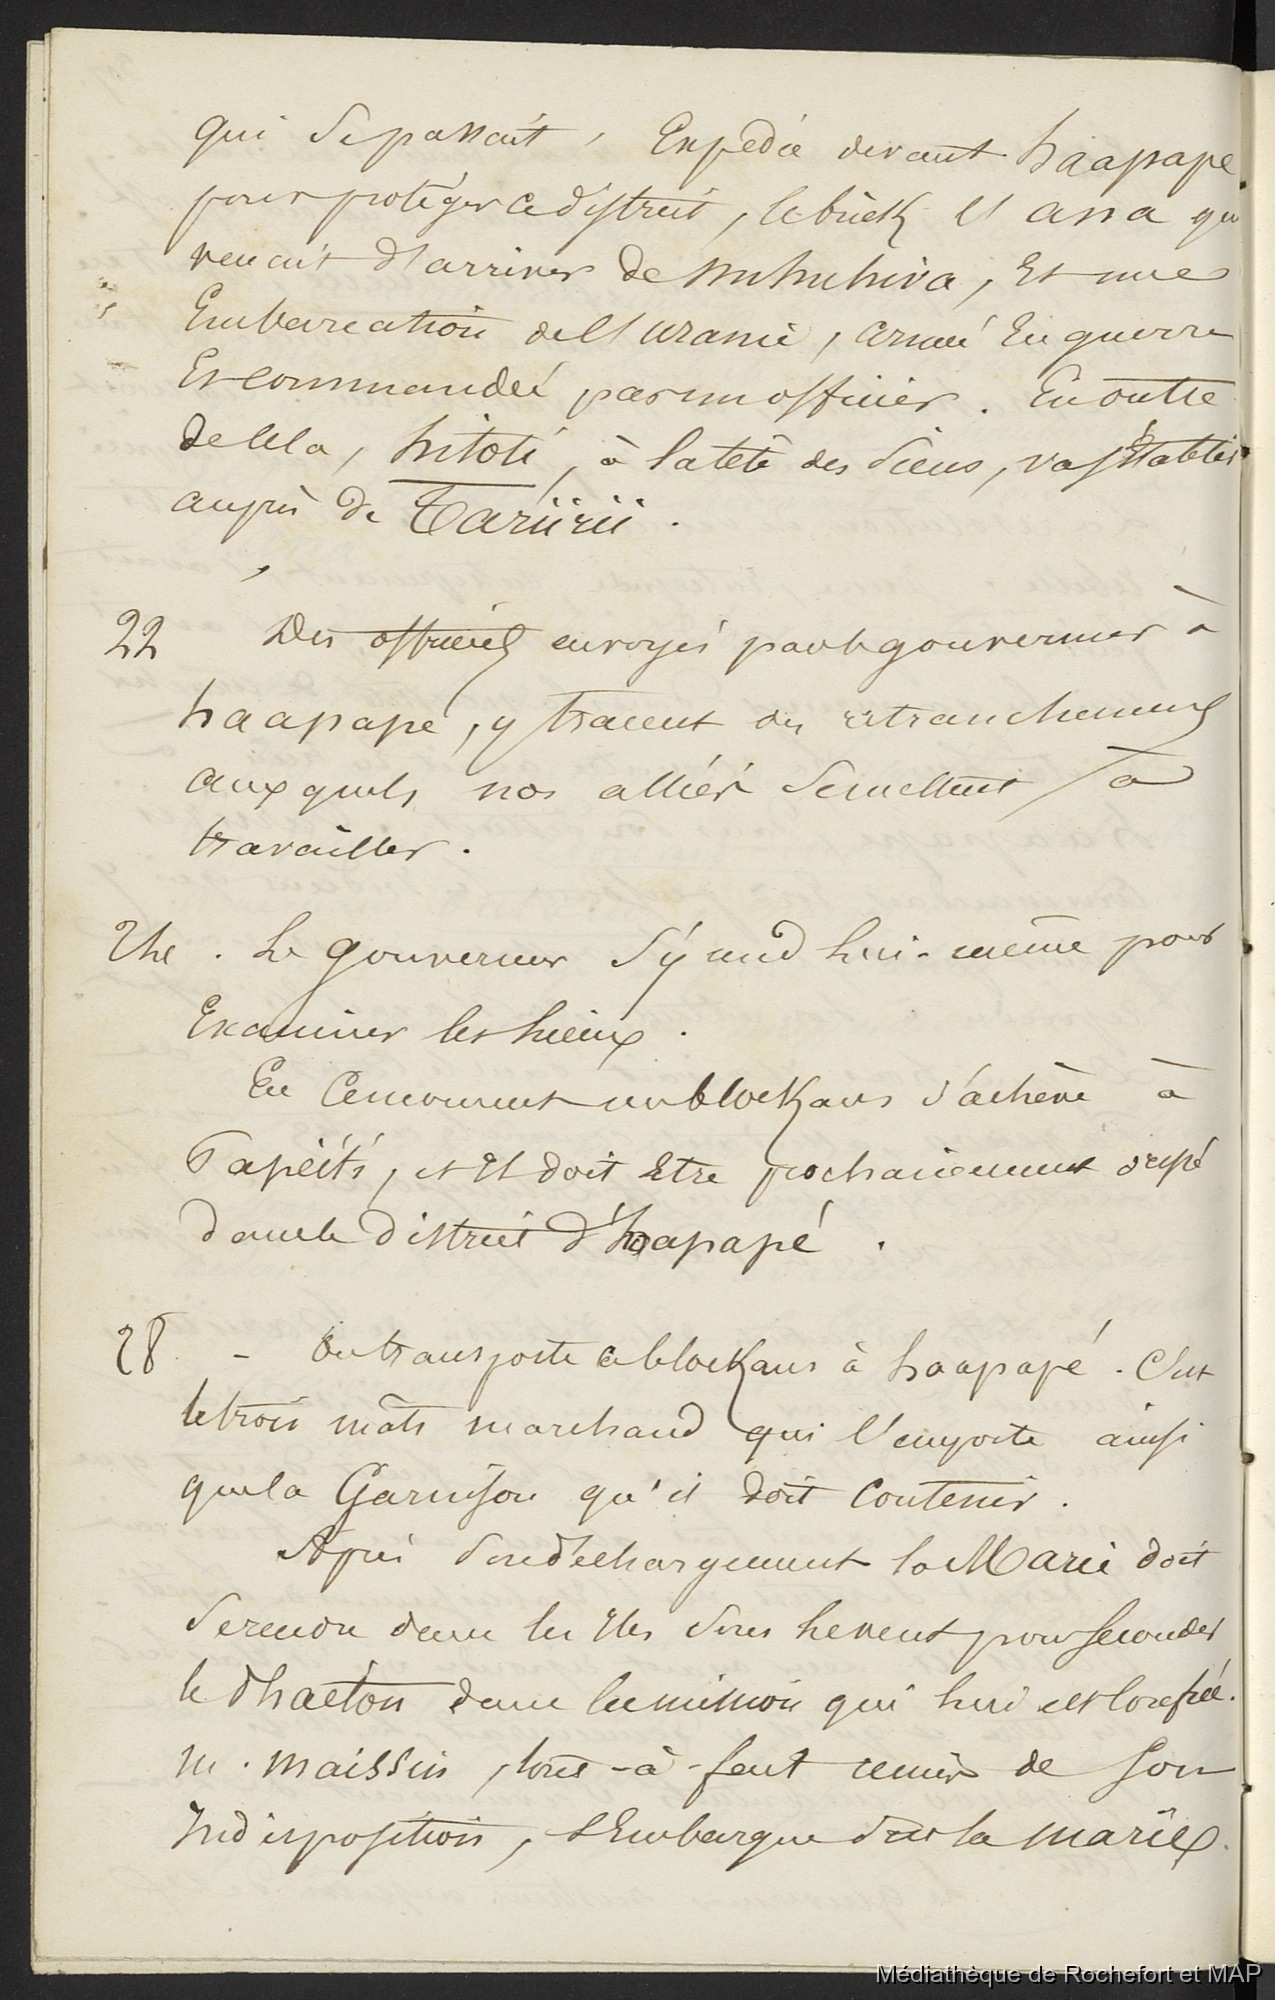 qui se passait, Expédia devant haapape
pour protéger ce district, le brick El anna qui
venait d'arriver de nuhuhiva, Et une
Embarcation de l'uranie, armée En guerre
Et commandée par un officier. En outre
de cela, hitoti, à la tête des siens, va s'Etablir
auprès de Tariirii.
22 Des officiers envoyés par le gouverneur à
haapape, y tracent des retranchements
auxquels nos alliés se mettent à
travailler.
24. Le gouverneur s'y rend lui-même pour
Examiner les lieux.
En ce moment un blockaus s'achève à
Papéïti, et Il doit Etre prochainement
dans le district d'haapapé.
28 - On transporte ce blockaus à haapapé. C'est
le trois mâts marchand qui l'emporte ainsi
que la Garnison qu'il doit Contenir.
Après son déchargement la Marie doit
se rendre dans les Iles sous le vent pour seconder
le Phaéton dans la mission qui lui est confiée.
M. Maissin, tout-à-fait remis de son
Indisposition, s'Embarque sur la Marie.
Médiathèque de Rochefort et MAP